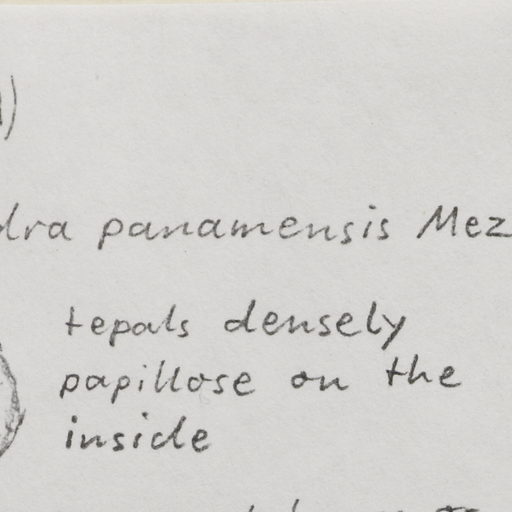 )
dra panamensis Mez
tepals densely
papillose on the
inside